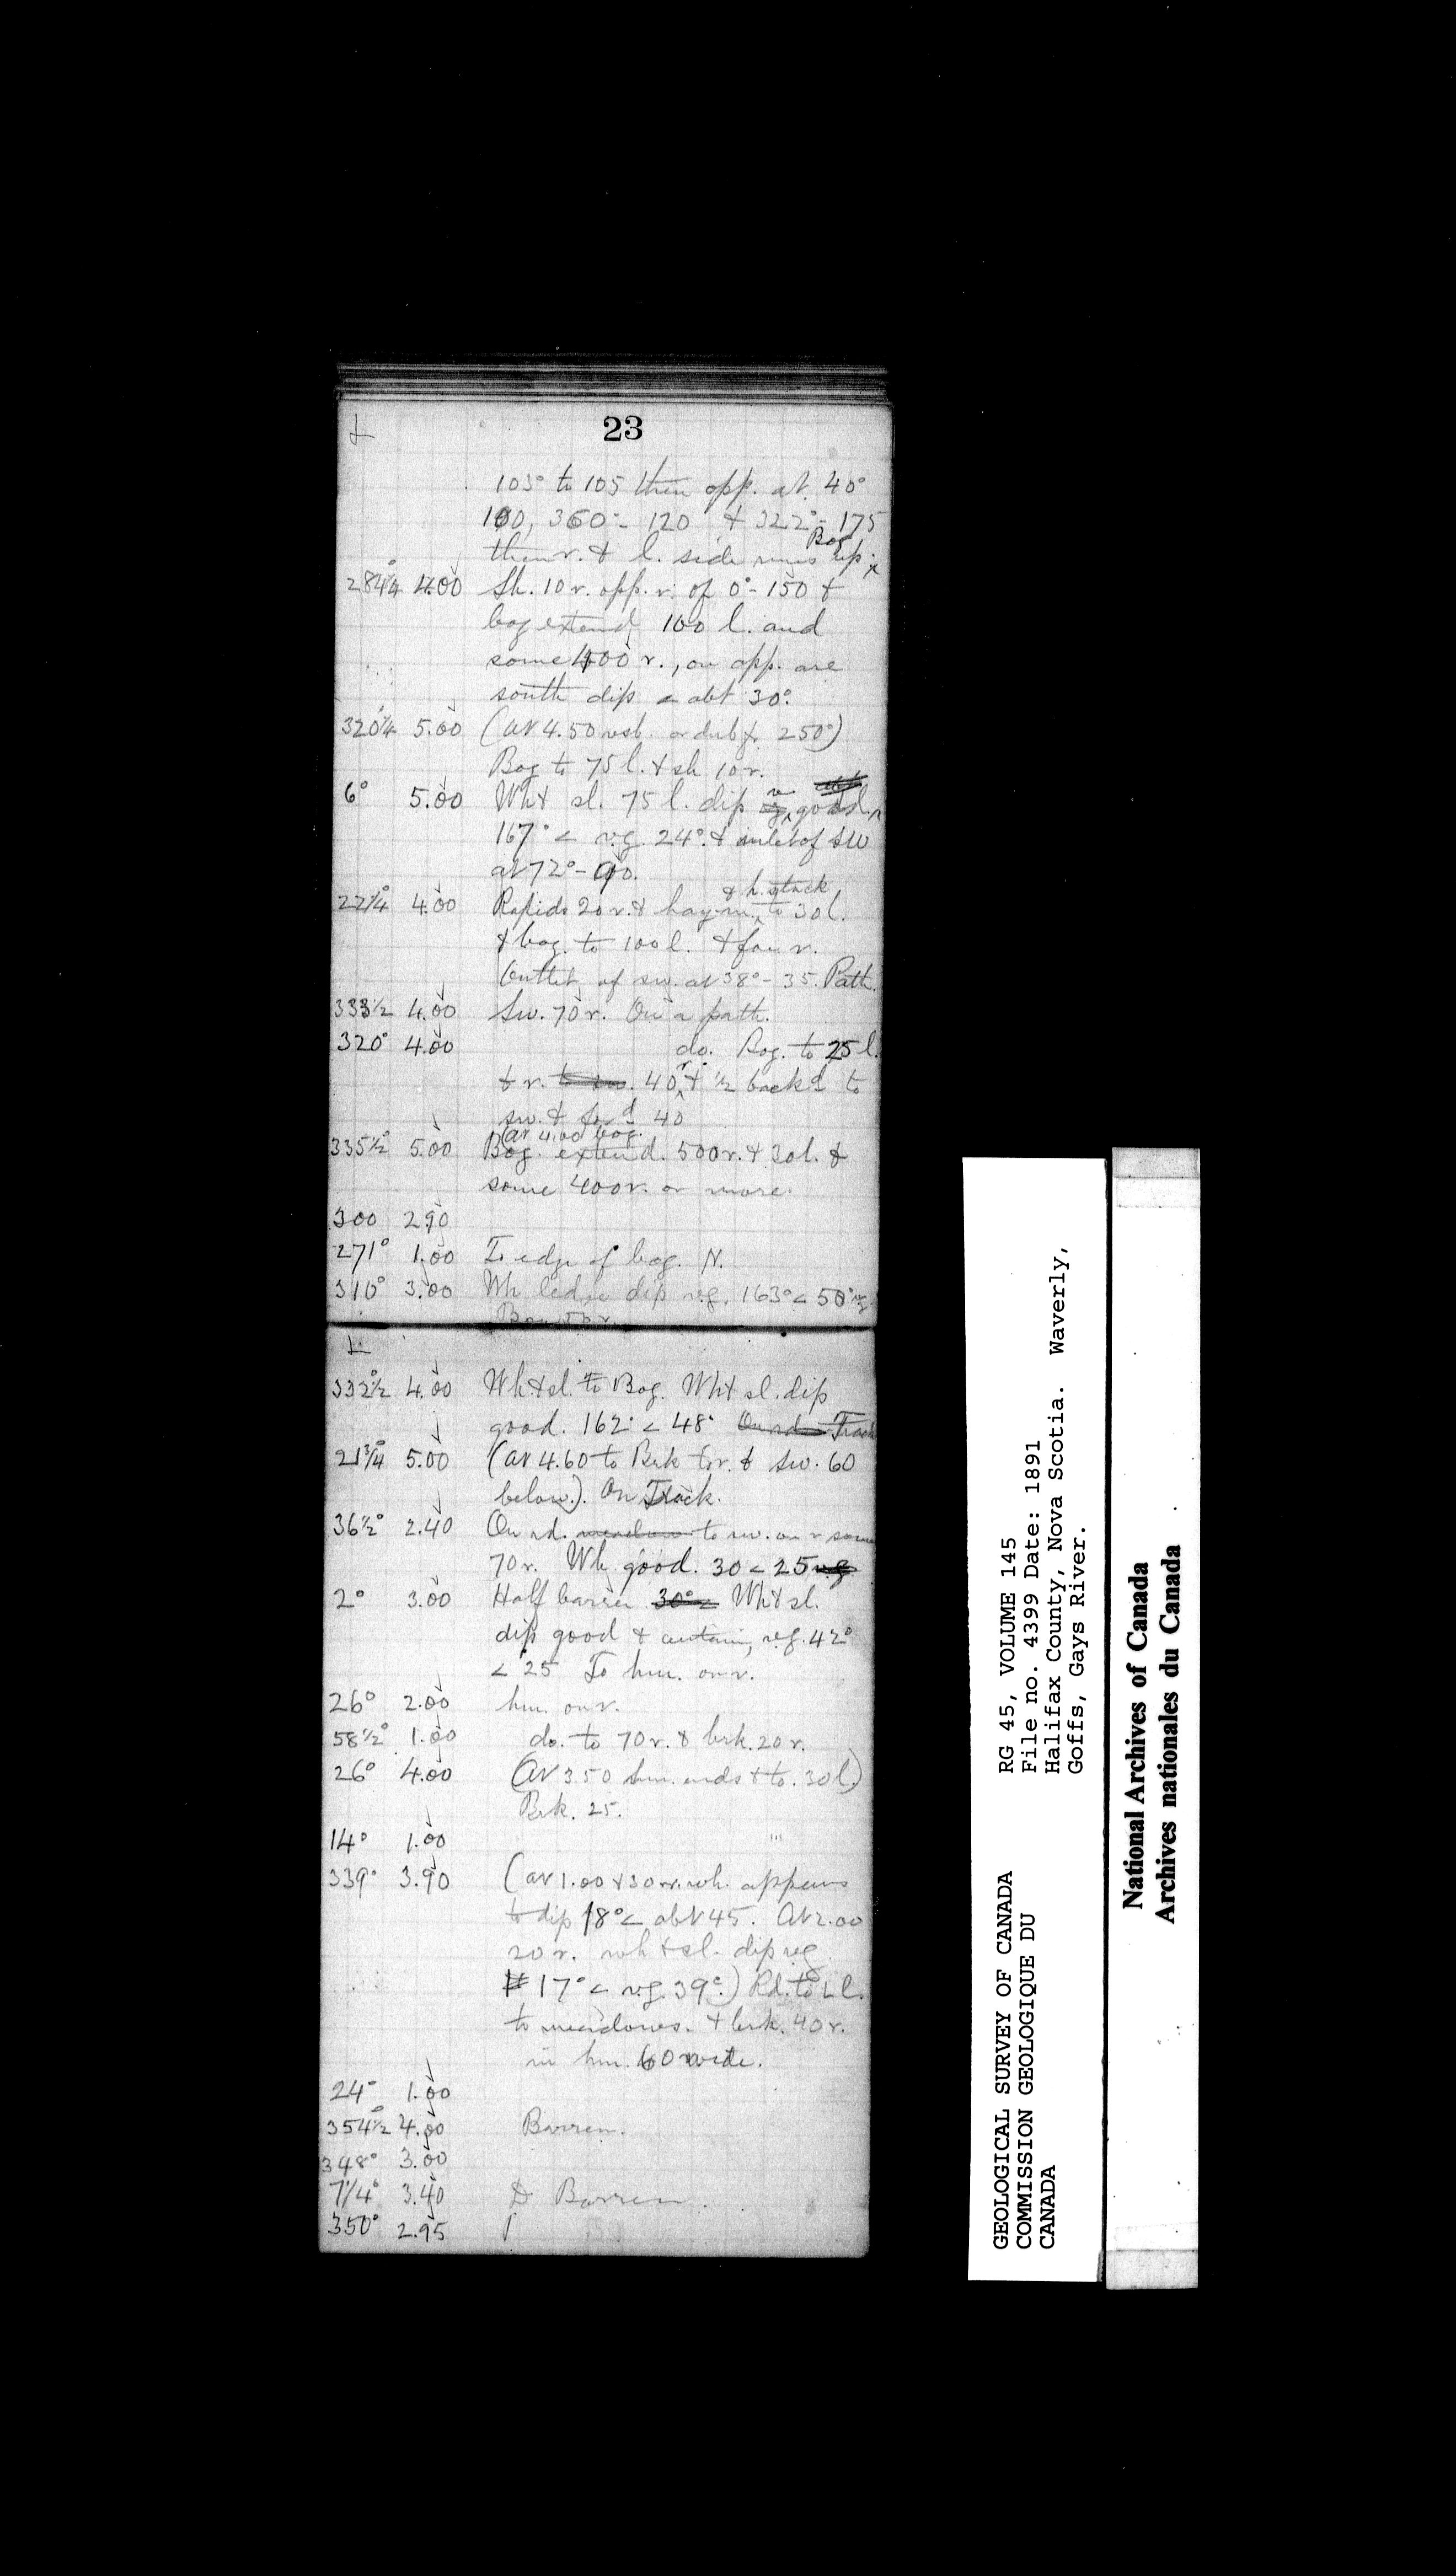 23
105° to 105 then opp. at 40°
100, 360°- 120 & 322°- 175
Bog
then r. & l. side runs up
284¼° 4.00 Sh. 10 r. opp. r. of 0°- 150 &
bog extend 100 l. and
some 400 r., on opp. are
south dip < abt 30°.
320¼° 5.00 (at 4.50 250°)
Bog to 75 l. & sh 10 r.
6° 5.00 Wh & sl. 75 l. dip good
167° < v.g. 24° & inlet of SW
at 72° - 90.
& h. stack
22¼° 4.00 Rapids 20 r. & hay m. to 30 l.
& bog. to 100 l. & far r.
Outlet of sw. at 38° - 35. Path.
333½ 4.00 Sw. 70 r. On a path.
320° 4.00 do. Bog. to 25 l.
& r. 40 & ½ backd to
sw. & 40
(at 4.00 bog.
335½° 5.00 Bog. extend. 500 r. & 30 l. &
some 400 r. or more.
300 2.90
271° 1.00 To edge of bog. N.
310° 3.00 Wh ledge dip reg. 163° < 50°
332½° 4.00 Wh & sl. To Bog. Wh & sl. dip
good. 162° < 48° On rd. Track
21¾° 5.00 (at 4.60 to Brk to r. & sw. 60
below.). On Track.
36½° 2.40 On rd. meadow to sw. on r some
70 r. Wh good. 30 < 25 v.g
2° 3.00 Half barren 30° < Wh & sl.
dip good & certain, reg. 42°
< 25 To hm. on r.
26° 2.00 hm. on r.
58½° 1.00 do. to 70 r. & brk. 20 r.
26° 4.00 (at 3.50 hm. ends & to. 30 l.)
Brk. 25.
14° 1.00 "
339° 3.90 (at 1.00 & 30 r. wh. appears
to dip 18° < abt 45. At 2.00
20 r. wh & sl. dip reg
17° < v.g. 39°.) Rd. to l.
to meadows. & brk. 40 r.
in hm. 60 wide.
24° 1.00
354½° 4.00 Barren.
348° 3.00
7¼° 3.40 Barren.
350° 2.95
GEOLOGICAL SURVEY OF CANADA
COMMISSION GEOLOGIQUE DU
CANADA
RG 45, VOLUME 145
File no. 4399 Date: 1891
Halifax County, Nova Scotia. Waverly,
Goffs, Gays River.
National Archives of Canada
Archives nationales du Canada